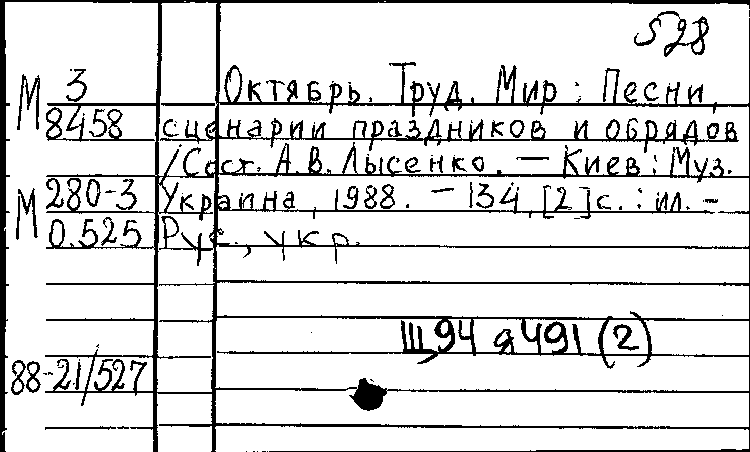 528
М 3 Октябрь. Труд. Мир : Песни,
8458 сценарии праздников и обрядов
/Сост. А.В. Лысенко. — Киев : Муз.
М 280-3 Украина, 1988. — 134, [2] с. : ил. –
0.525 Рус., укр.
Щ94 я491 (2)
88-21/527